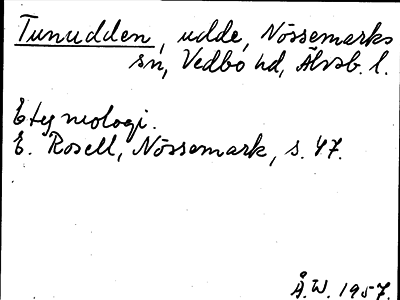 Tunudden, udde, Nössemarks
sn, Vedbo hd, Älvsb. l.
Etymologi.
E. Rosell, Nössemark, s. 47.
Å. W. 1957.